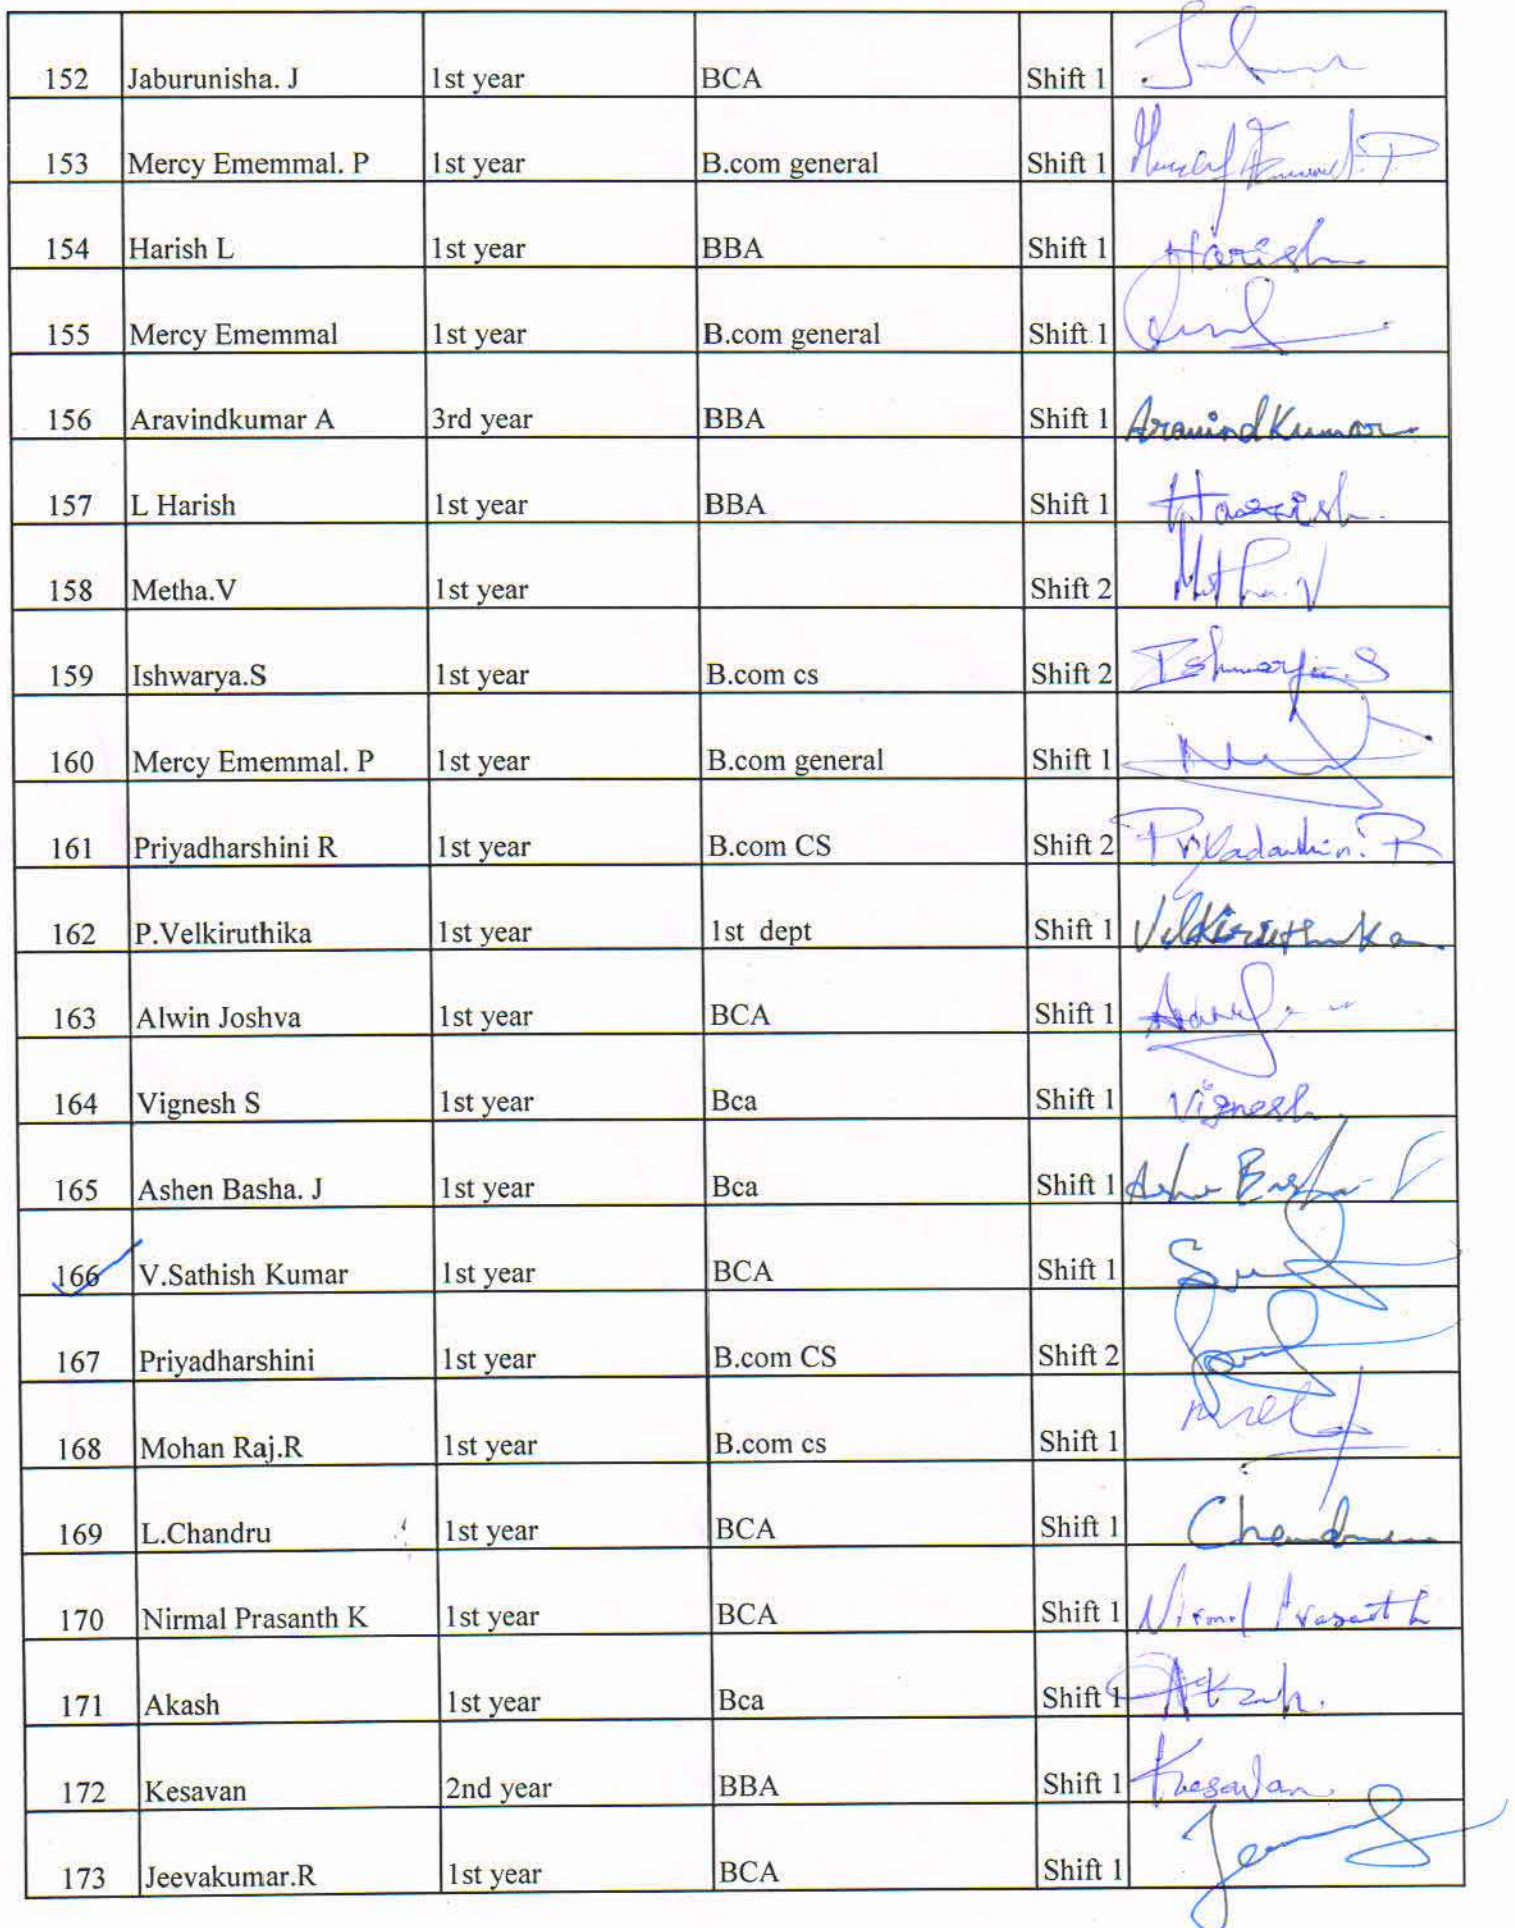 152 Jaburunisha. J 1st year BCA Shift 1
153 Mercy Ememmal. P 1st year B.com general Shift 1
154 Harish L 1st year BBA Shift 1 Harish
155 Mercy Ememmal 1st year B.com general Shift 1
156 Aravindkumar A 3rd year BBA Shift 1 AravindKumar
157 L Harish 1st year BBA Shift 1
158 Metha.V 1st year Shift 2
159 Ishwarya.S 1st year B.com cs Shift 2 Ishwarya.S
160 Mercy Ememmal. P 1st year B.com general Shift 1
161 Priyadharshini R 1st year B.com CS Shift 2
162 P.Velkiruthika 1st year 1st dept Shift 1
163 Alwin Joshva 1st year BCA Shift 1
164 Vignesh S 1st year Bca Shift 1 Vignesh
165 Ashen Basha. J 1st year Bca Shift 1
166 V.Sathish Kumar 1st year BCA Shift 1
167 Priyadharshini 1st year B.com CS Shift 2
168 Mohan Raj.R 1st year B.com cs Shift 1
169 L.Chandru 1st year BCA Shift 1
170 Nirmal Prasanth K 1st year BCA Shift 1 Nirmal Prasanth
171 Akash 1st year Bca Shift 1
172 Kesavan 2nd year BBA Shift 1 Kesavan
173 Jeevakumar.R 1st year BCA Shift 1